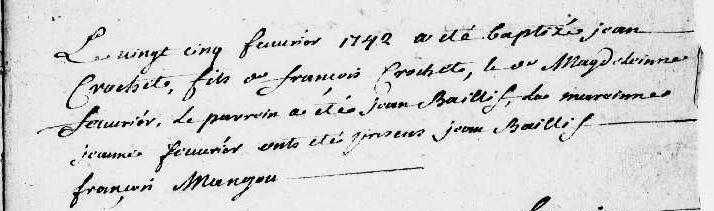 Le vingt cinq feuvrier 1742 a été baptizé jean
Crochet, fils de françois Crochet, le de Magdeleinne
feuvrier, Le parrein a été jean Baillif, La mareinne
jeanne feuvrier onts été presens jean Baillif
françois Mangou